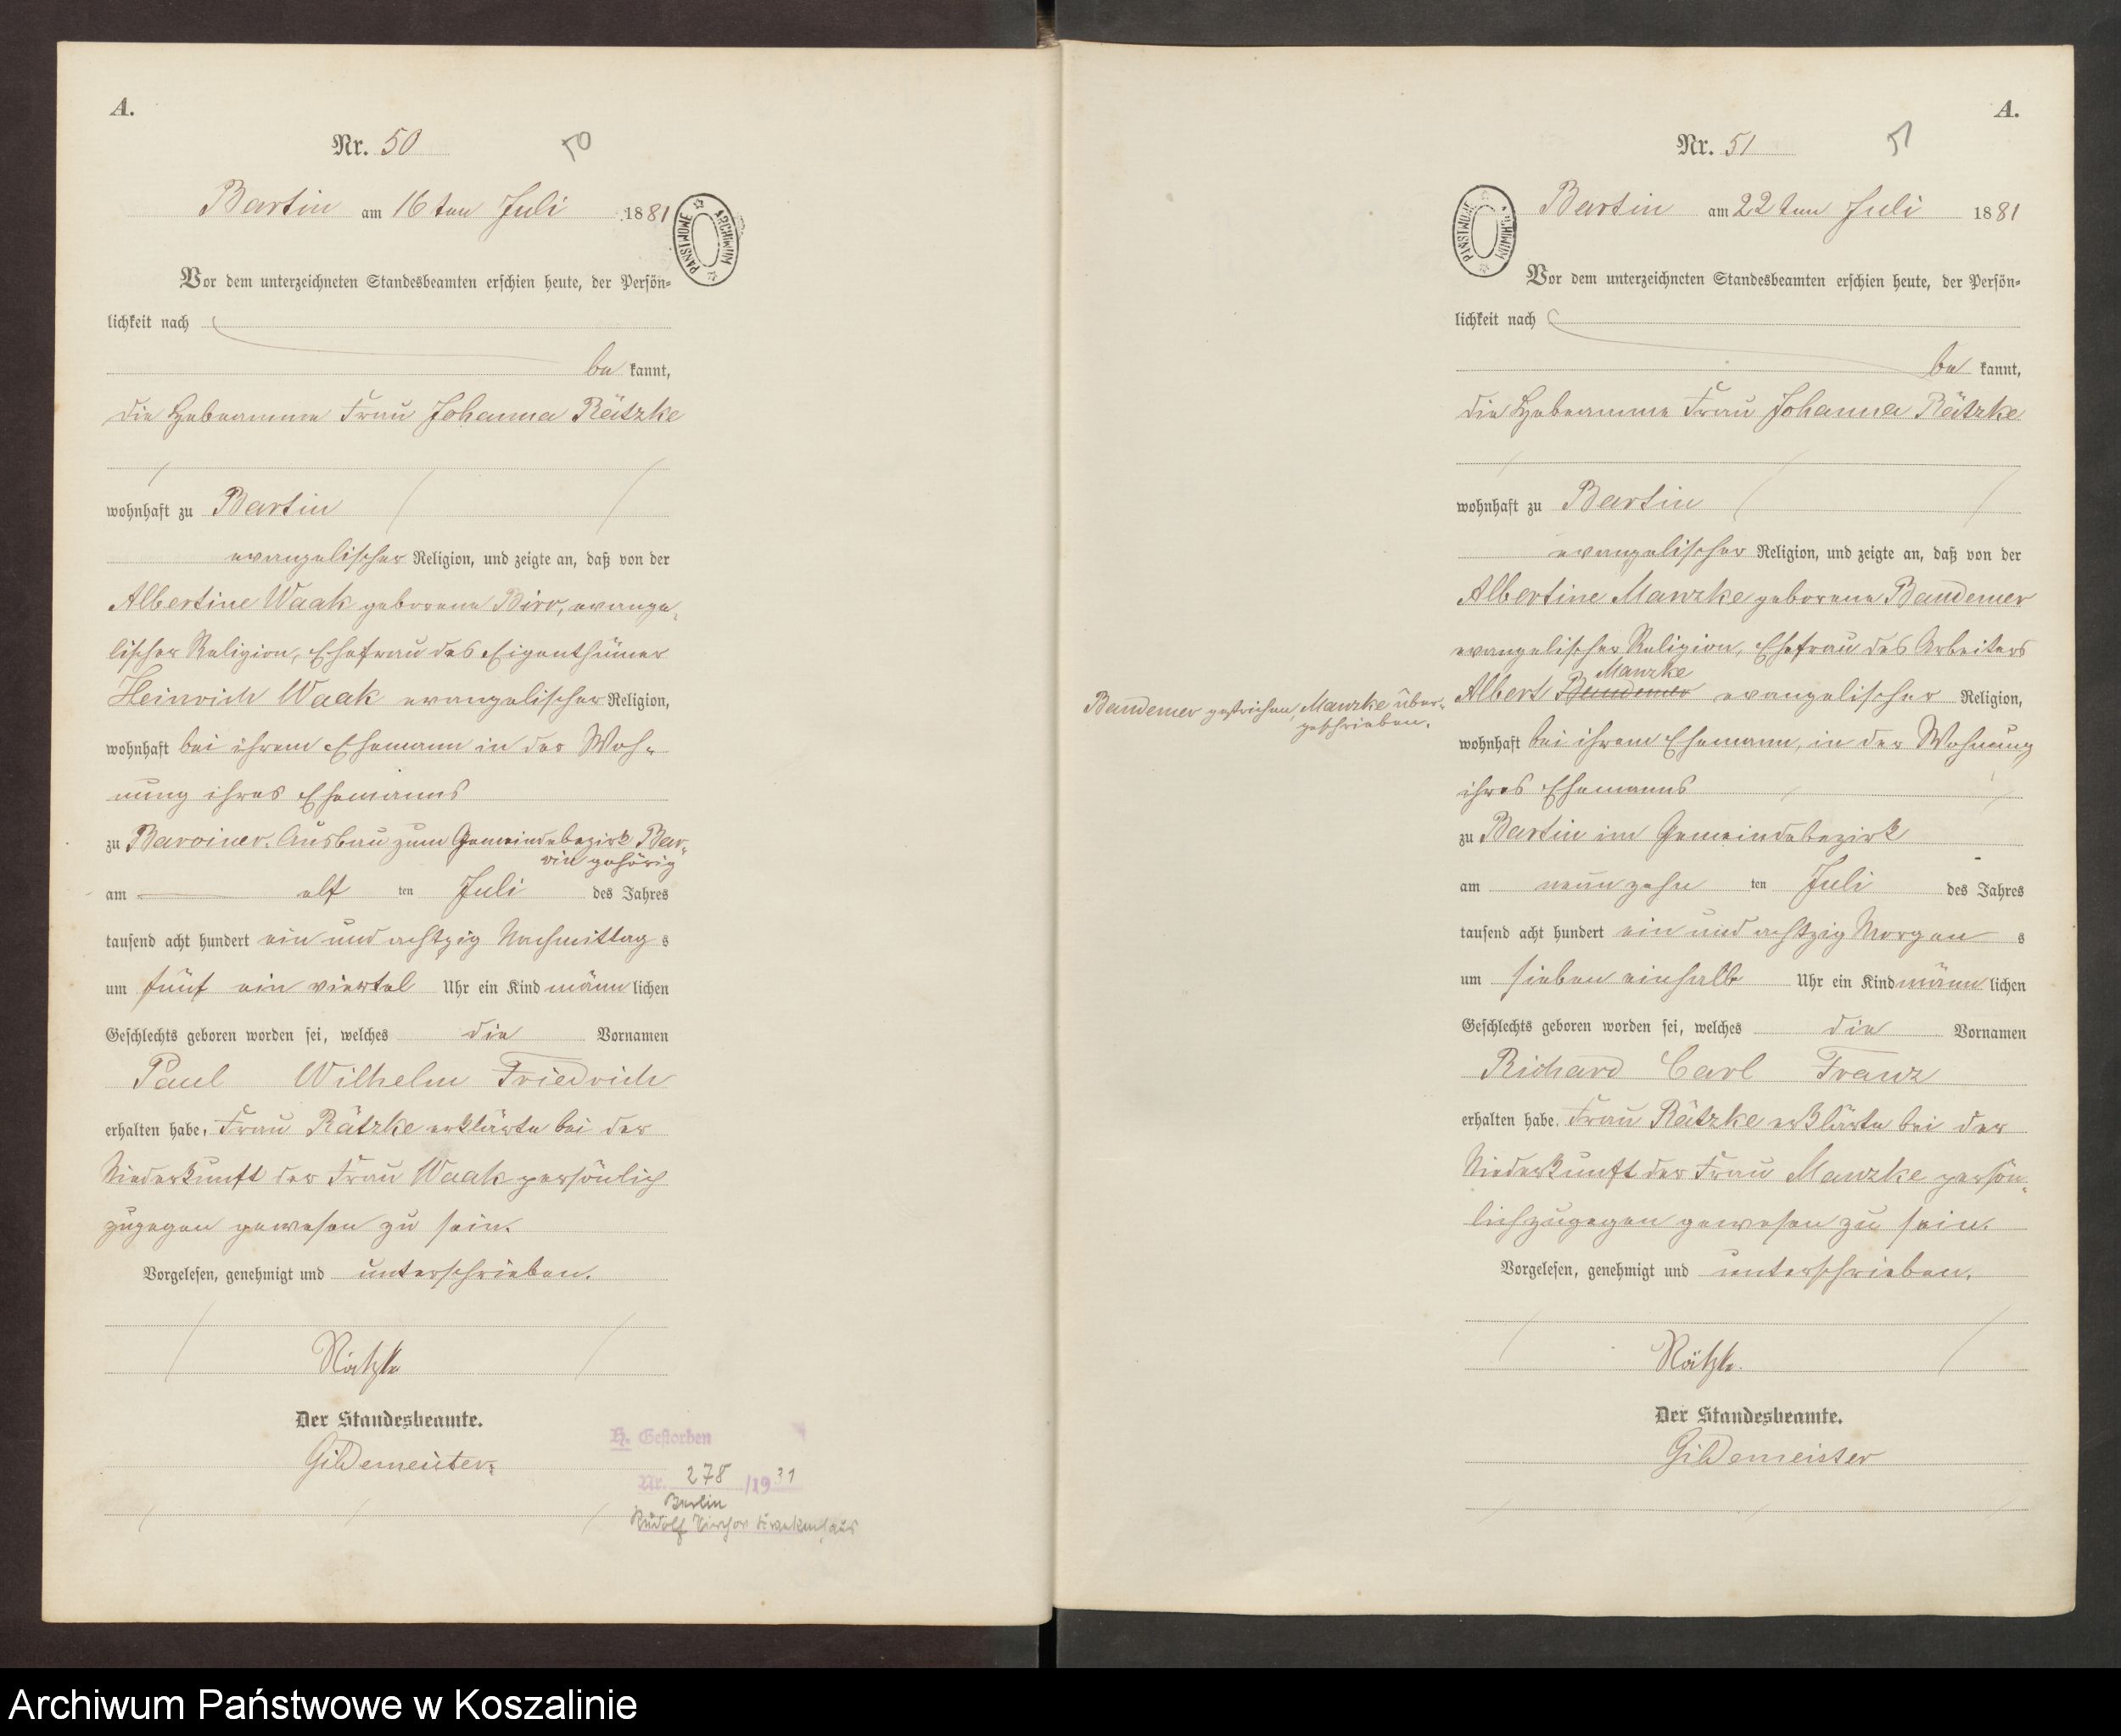 A.
Nr. 50
50
Bartin am 16ten Juli 1881
ARCHIWUM PAŃSTWOWE
Vor dem unterzeichneten Standesbeamten erschien heute, der Persön-
lichkeit nach
be kannt,
die Hebeamme Frau Johanna Rätzke
wohnhaft zu Bartin
evangelischer Religion, und zeigte an, daß von der
Albertine Waak geborene Birr, evange-
lischer Religion, Ehefrau des Eigenthümer
Heinrich Waak evangelischer Religion,
wohnhaft bei ihrem Ehemann in der Woh-
nung ihres Ehemanns
zu Barviner Ausbau zum Gemeindebezirk Bar-
vin gehörig
am elf ten Juli des Jahres
tausend acht hundert ein und achtzig Nachmittag s
um fünf ein viertel Uhr ein Kind männ lichen
Geschlechts geboren worden sei, welches die Vornamen
Paul Wilhelm Friedrich
erhalten habe. Frau Rätzke erklärte bei der
Niederkunft der Frau Waak persönlich
zugegen gewesen zu sein.
Vorgelesen, genehmigt und unterschrieben.
Rätzke
Der Standesbeamte.
Gildemeister.
H. Gestorben
Nr. 278 /1931
Berlin
Rudolf Virchow Krankenhaus
A.
Nr. 51
51
Bartin am 22ten Juli 1881
ARCHIWUM PAŃSTWOWE
Vor dem unterzeichneten Standesbeamten erschien heute, der Persön-
lichkeit nach
be kannt,
die Hebeamme Frau Johanna Rätzke
wohnhaft zu Bartin
evangelischer Religion, und zeigte an, daß von der
Albertine Manzke geborene Bandemer
evangelischer Religion, Ehefrau des Arbeiters
Manzke
Albert Bandemer evangelischer Religion,
Bandemer gestrichen, Manzke über-
geschrieben.
wohnhaft bei ihrem Ehemann, in der Wohnung
ihres Ehemanns
zu Bartin im Gemeindebezirk
am neunzehn ten Juli des Jahres
tausend acht hundert ein und achtzig Morgen s
um sieben einhalb Uhr ein Kind männ lichen
Geschlechts geboren worden sei, welches die Vornamen
Richard Carl Franz
erhalten habe. Frau Rätzke erklärte bei der
Niederkunft der Frau Manzke persön-
lich zugegen gewesen zu sein.
Vorgelesen, genehmigt und unterschrieben.
Rätzke.
Der Standesbeamte.
Gildemeister
Archiwum Państwowe w Koszalinie